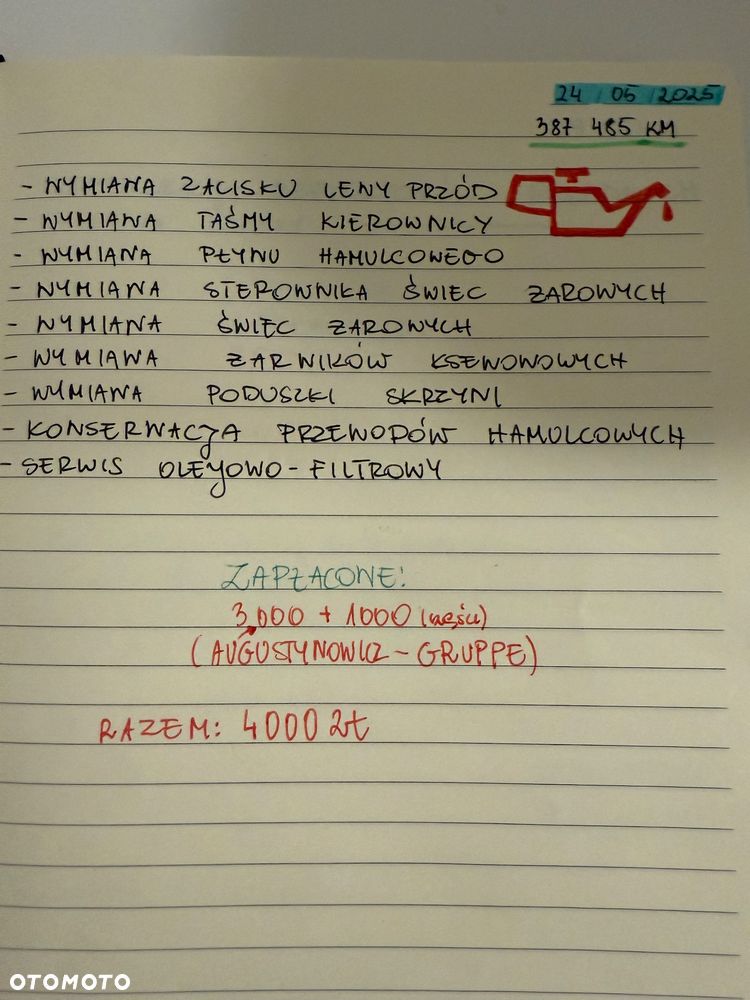 24 / 05 / 2025
387 485 KM
- WYMIANA ZACISKU LEWY PRZÓD
- WYMIANA TAŚMY KIEROWNICY
- WYMIANA PŁYNU HAMULCOWEGO
- WYMIANA STEROWNIKA ŚWIEC ŻAROWYCH
- WYMIANA ŚWIEC ŻAROWYCH
- WYMIANA ŻARNIKÓW KSENONOWYCH
- WYMIANA PODUSZKI SKRZYNI
- KONSERWACJA PRZEWODÓW HAMULCOWYCH
- SERWIS OLEJOWO-FILTROWY
ZAPŁACONE:
3.000 + 1000 (części)
(AUGUSTYNOWICZ - GRUPPE)
RAZEM: 4000 zł
OTOMOTO